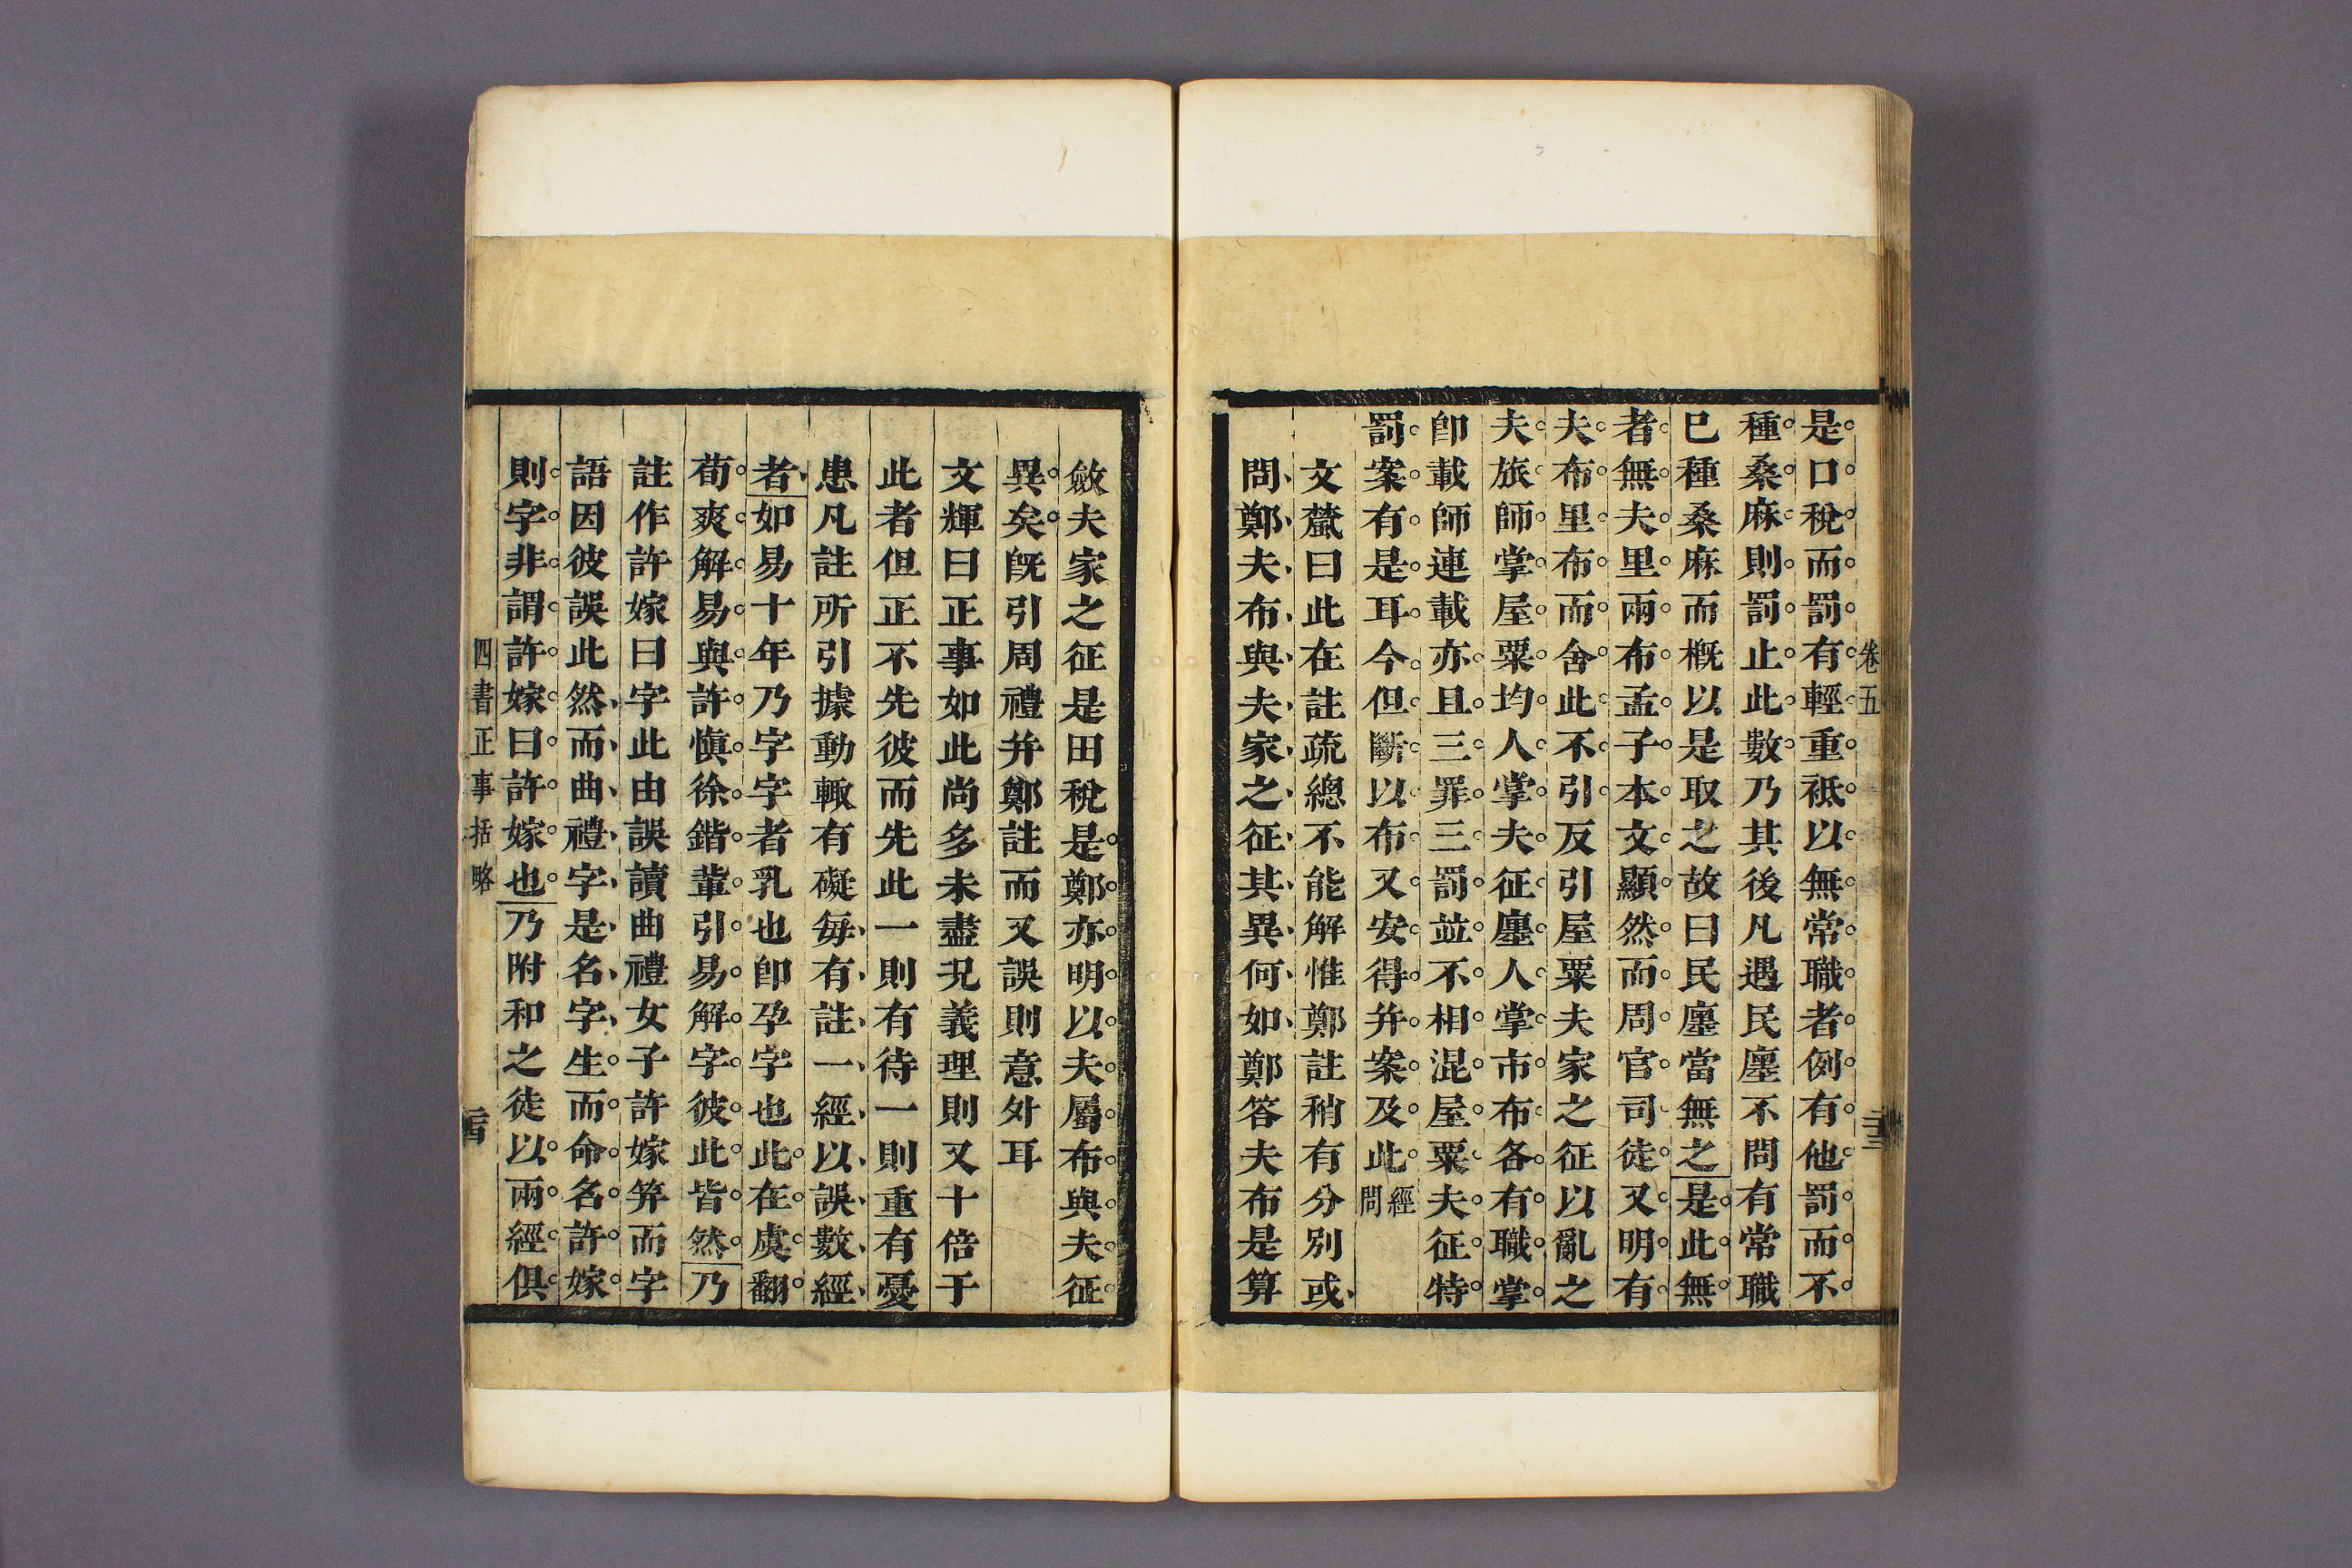 卷五
二十三
是口稅而罰有輕重祗以無常職者例有他罰而不
種桑麻則罰止此數乃其後凡遇民廛不問有常職
已種桑麻而槪以是取之故曰民廛當無之是此無
者無夫里兩布孟子本文顯然而周官司徒又明有
夫布里布而舍此不引反引屋粟夫家之征以亂之
夫旅師掌屋粟均人掌夫征廛人掌市布各有職掌
卽載師連載亦且三罪三罰並不相混屋粟夫征特
罰案有是耳今但斷以布又安得并案及此經問
文虨曰此在註疏總不能解惟鄭註稍有分別或
問鄭夫布與夫家之征其異何如鄭答夫布是算
斂夫家之征是田稅是鄭亦明以夫屬布與夫征
異矣旣引周禮并鄭註而又誤則意外耳
文輝曰正事如此尚多未盡況義理則又十倍于
此者但正不先彼而先此一則有待一則重有憂
患凡註所引據動輒有礙每有註一經以誤數經
者如易十年乃字字者乳也卽孕字也此在虞翻
荀爽解易與許愼徐鍇輩引易解字彼此皆然乃
註作許嫁曰字此由誤讀曲禮女子許嫁笄而字
語因彼誤此然而曲禮字是名字生而命名許嫁
則字非謂許嫁曰許嫁也乃附和之徒以兩經俱
四書正事括略